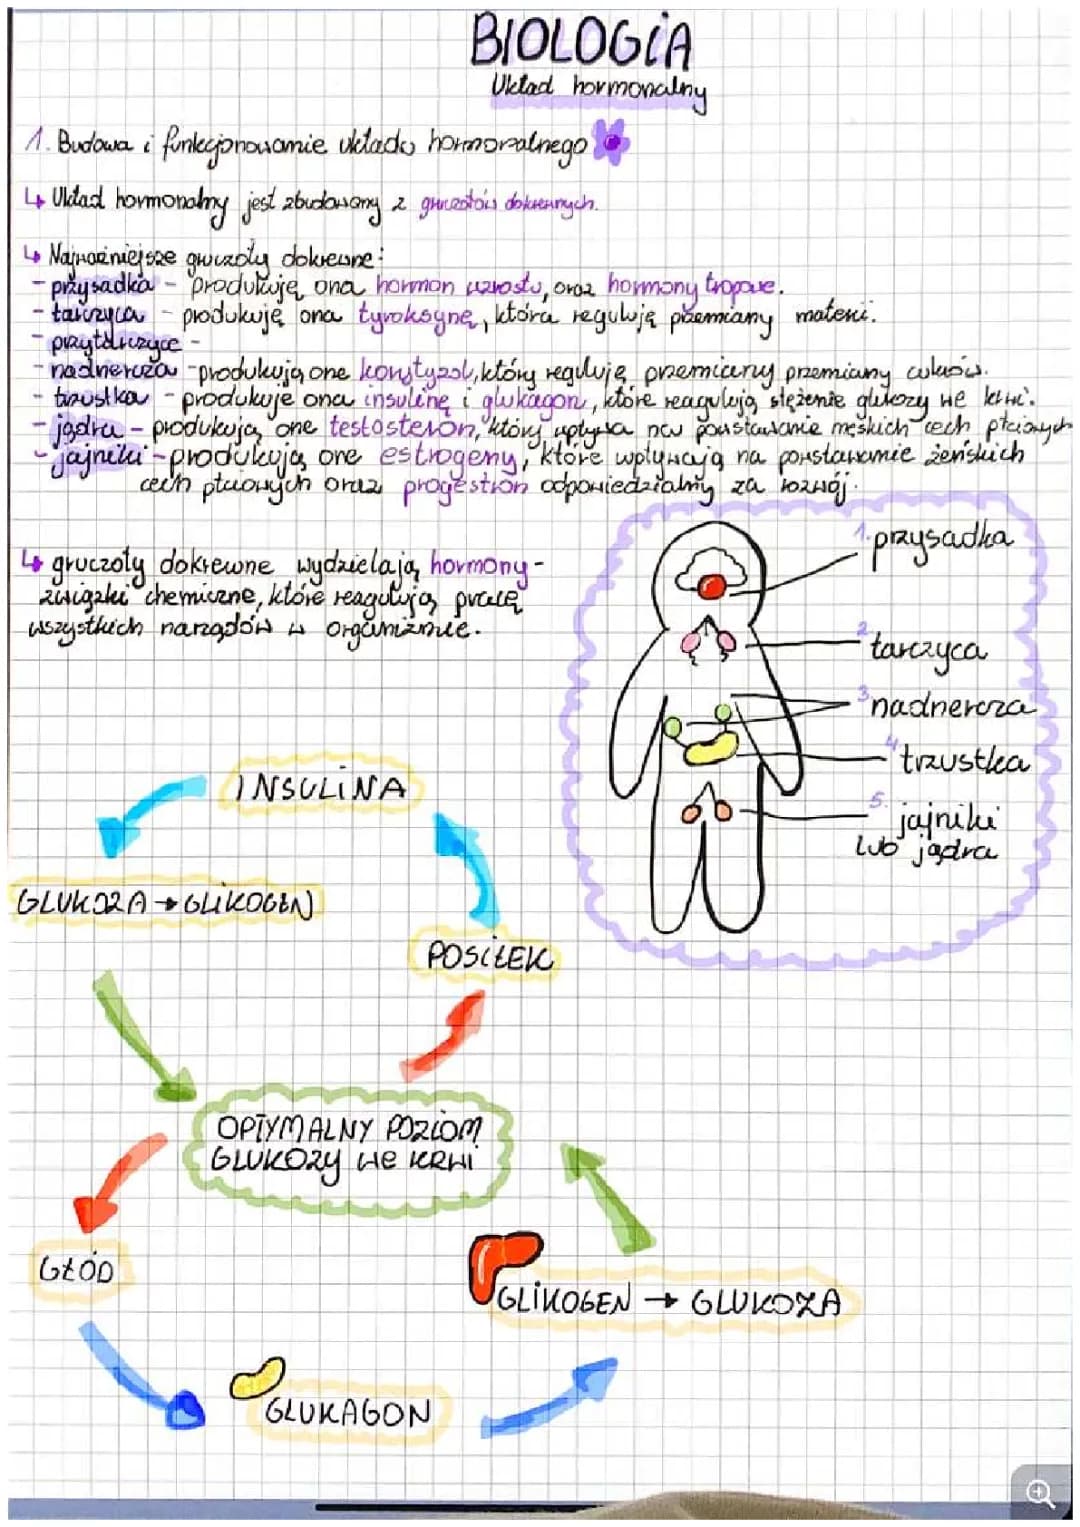 BIOLOGIA
Układ hormonalny
1. Budowa i funkcjonowanie układu hormonalnego
↳ Układ hormonalny jest zbudowany z gruczołów dokrewnych.
↳ Najważniejsze gruczoły dokrewne:
- przysadka - produkuję ona hormon wzrostu, oraz hormony tropowe.
- tarczyca - produkuję ona tyroksynę, która reguluję przemiany materii.
- przytarczyce -
- nadnercza - produkują one konstyzol, który reguluję przemiany przemiany cukrów.
- trzustka - produkuje ona insulinę i glukagon, które reagulują stężenie glukozy we krwi.
- jądra - produkują one testosteron, który wpływa na powstawanie męskich cech płciowych
- jajniki - produkują one estrogeny, które wpływają na powstawanie żeńskich
cech płciowych oraz progestron odpowiedzialny za rozwój.
↳ gruczoły dokrewne wydzielają hormony -
związki chemiczne, które reagulują pracę
wszystkich narządów w organizmie.
1. przysadka
2. tarczyca
3. nadnercza
4. trzustka
5. jajniki
lub jądra
INSULINA
GLUKOZA → GLIKOGEN
POSIŁEK
OPTYMALNY POZIOM
GLUKOZY WE KRWI
GŁÓD
GLIKOGEN → GLUKOZA
GLUKAGON